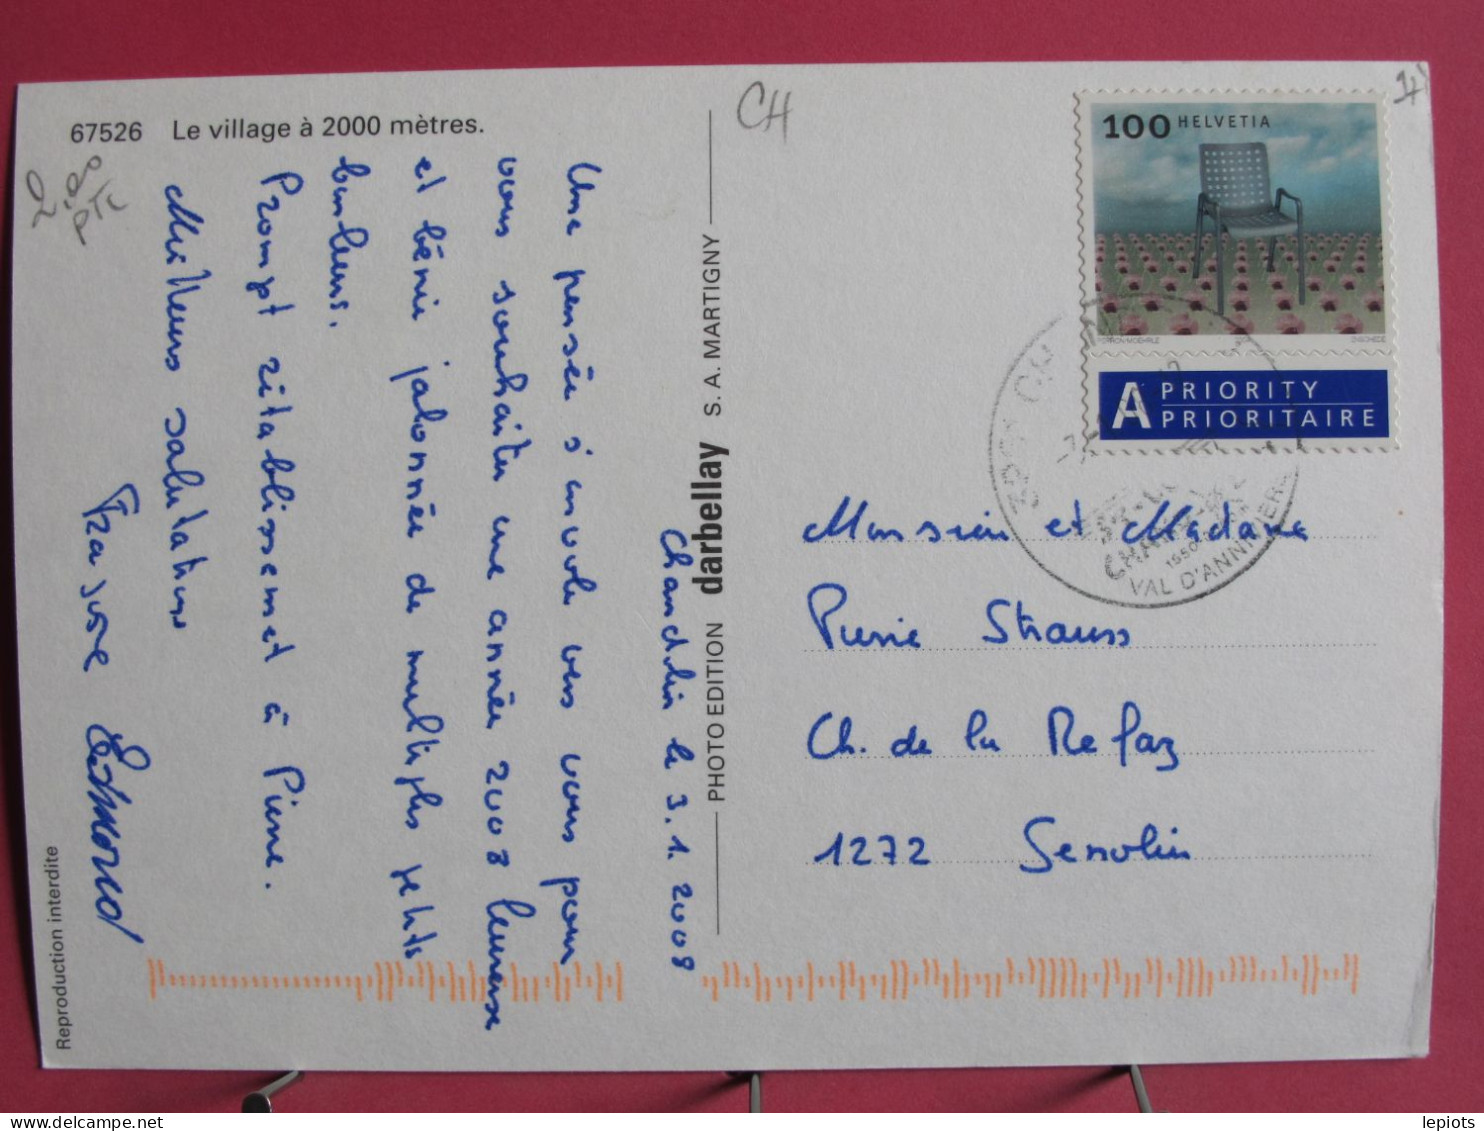 67526 Le village à 2000 mètres.
CH
2.00
PTC
Chandolin le 3.1.2008
Une pensée s'envole vers vous pour
vous souhaiter une année 2008 heureuse
et bénie jalonnée de multiples petits
bonheurs.
Prompt rétablissement à Pierre.
Meilleures salutations
Edmond
Reproduction interdite
PHOTO EDITION darbellay S. A. MARTIGNY
100 HELVETIA
A PRIORITY
PRIORITAIRE
ST-LUC
CHANDOLIN
VAL D'ANNIVIERS
Monsieur et Madame
Pierre Strauss
Ch. de la Refaz
1272 Genolier
lepiots